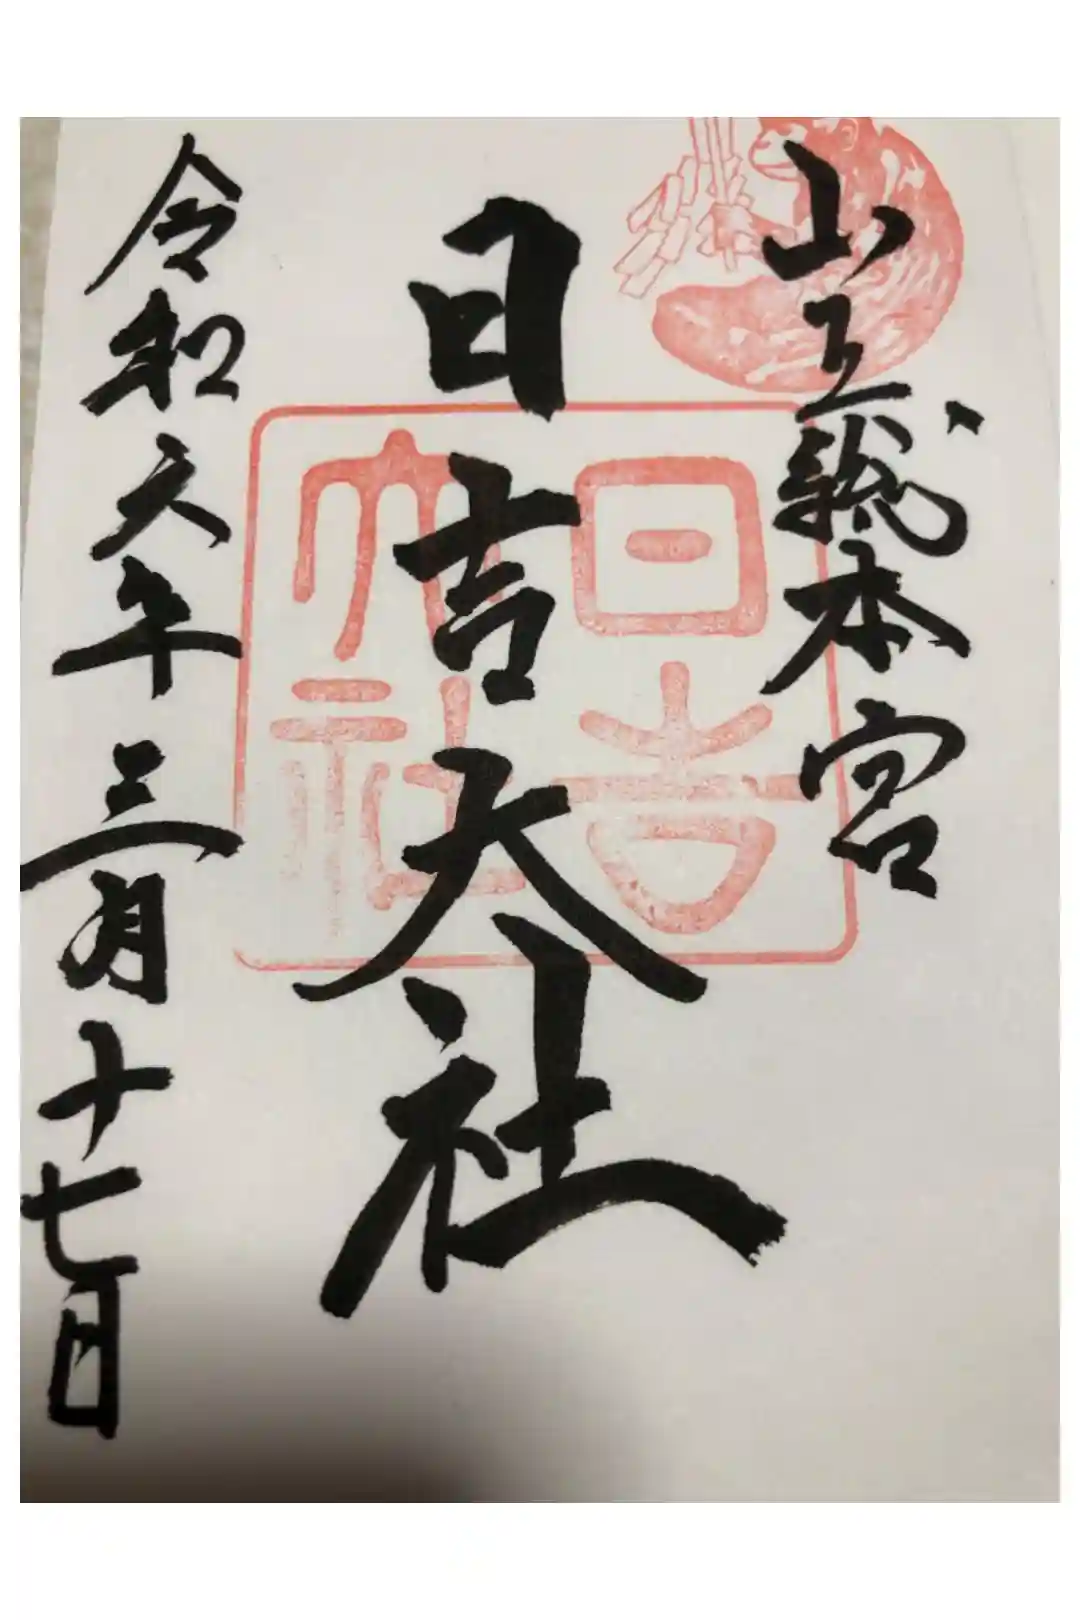 山王総本宮
日吉大社
令和六年三月十七日
日吉
大社